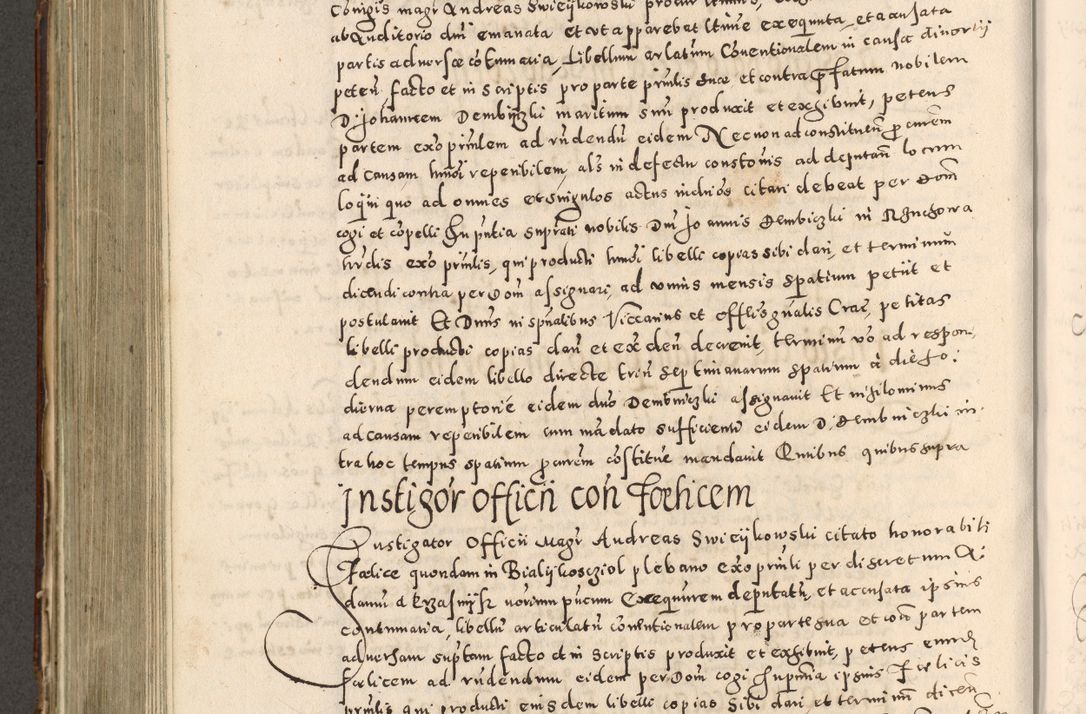 Coniugis magr Andreas Swieÿkowski
ab Auditorio dni emanata et ut apparebat ltime exequuta, et accusata
partis adversæ cõtumacia, Libellum articulatum Conventionalem in causa divortij
peteñ facto et in scriptis pro parte prñlis suæ et contra præfatum nobilem
D: Johannem Dembiṅzki maritum suũ produxit et exhibuit, petens
partem ex õ prñlem ad rñdendũ eidem Nec non ad constituen̄ procurem
ad Causam hmõi reperibilem, als in defectu constonis ad deputan̄ locum
loqui quo ad omnes et singulos actus indivos citari debeat per Dom̃
cogi et cõpelli In pñtia suprati nobilis Dñi Joannis Dembiczki in
hrdis ex õ prñlis, qui producti hmõi libelli copias sibi dari, et terminum
dicendi contra per Dom̃ assignari, ad unius mensis spatium petiit et
postulavit Et Dnus in spñalibus Viccarius et Offlis gñalis Crac̃ petitas
libelli producti copias dari et exden̄ decrevit, terminũ vo ad respon,
dendum eidem libello directe trin̄ septimanarum spatium à die
dierna peremptoriè eidem dno Dembiniczki assignavit Et nihilominus
ad causam reperibilem cum mãdato sufficienti eidem D: Dembniczki in,
tra hoc tempus spatium procurem cõstitue mandavit Quibus quibus supra
Instigõr Officii con̄ Fœlicem
Instigator Officii Magr Andreas Swieÿkowski citato honorabili
Fœlice quondam in Bialÿkosczyol plebano ex õ prñli per discretum
damũ d Krzasnijk unrium pucum Exequurem deputatũ, et accusata ipsius
contumacia, libellũ articulatũ conventionalem pro parte sua et con̄ partem
adversam suptam facto et in scriptis produxit et exhibuit, petens eund
fœlicem ad rñdendum eidem per Dom̃ cogi In pñtia ipsius Fœlicis
prñlis qui producti eiusdem libelli copias sibi dari, et terminũ dicen̄